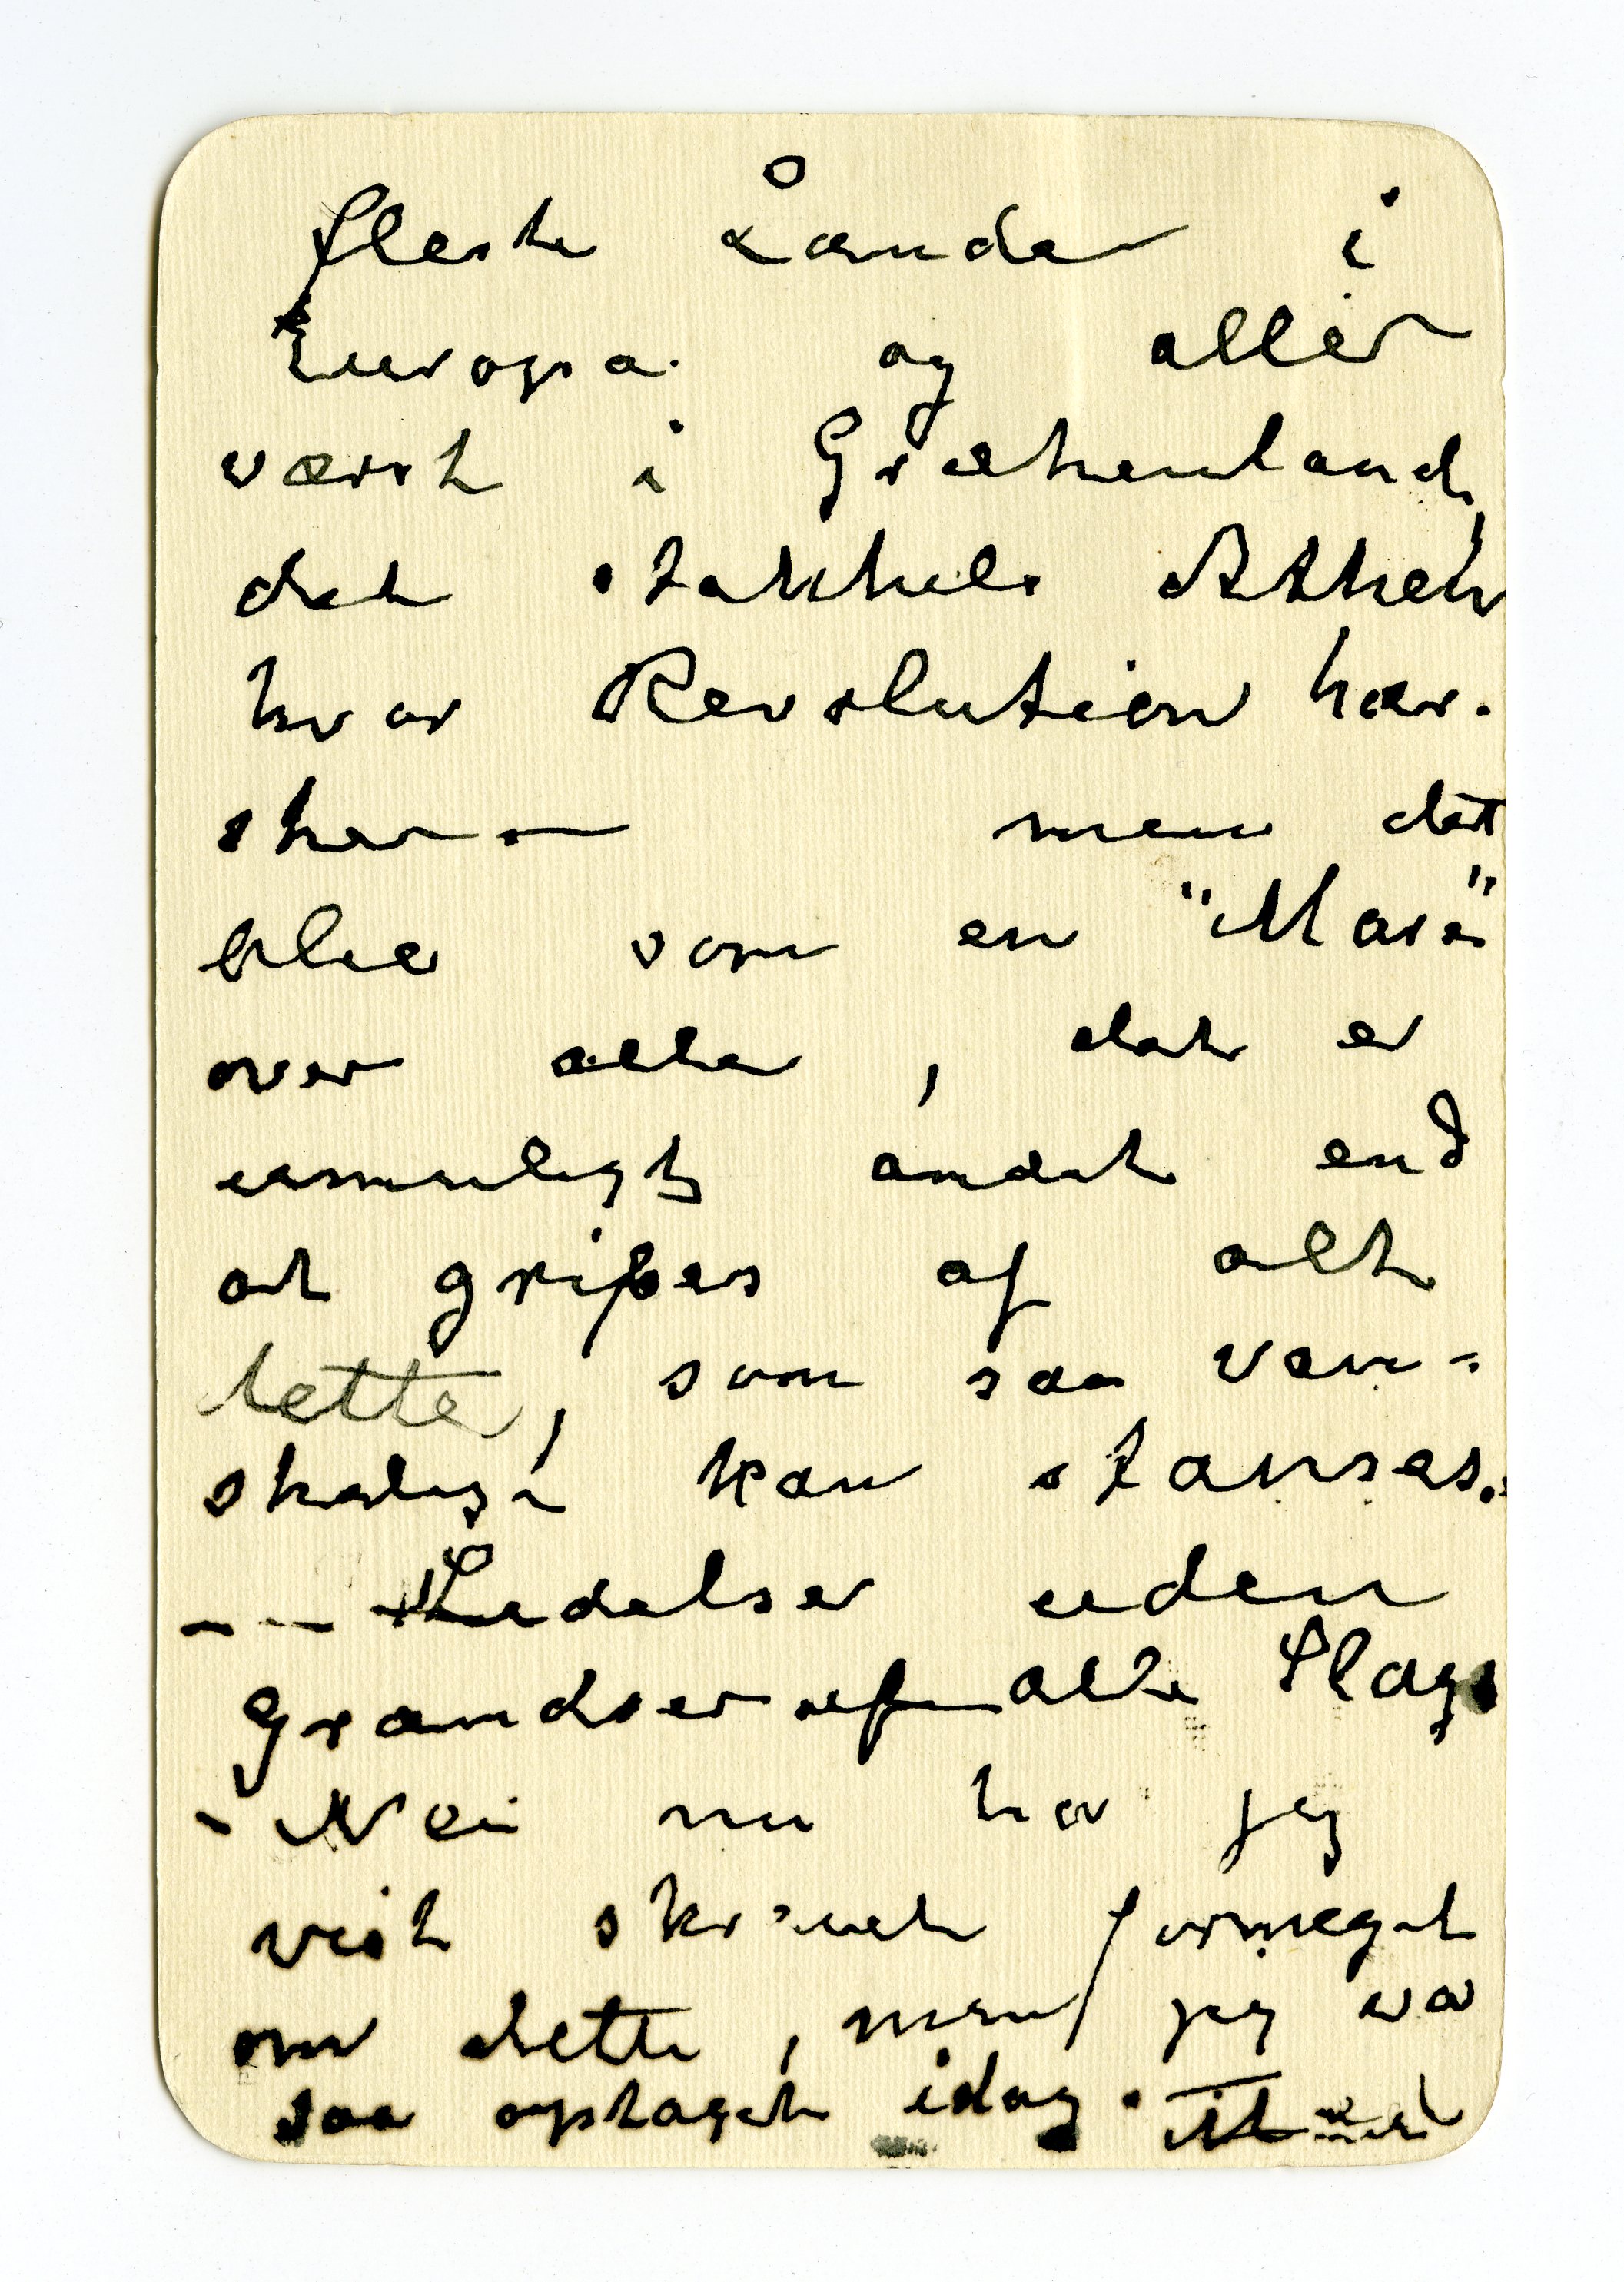 fleste Lande i
Europa. og aller
værst i Grækenland,
det stakkels Athen
hvor Revolution her-
sker — men det
blev som en "Mare"
over alle, det er
umuligt andet end
at gribes af alt
dette, som saa van=
skeligt kan standses.
— — Lidelser uden
Grændser af alle Slags
- Nei nu har jeg
vist skrevet formeget
om dette, men jeg var
saa optaget idag.